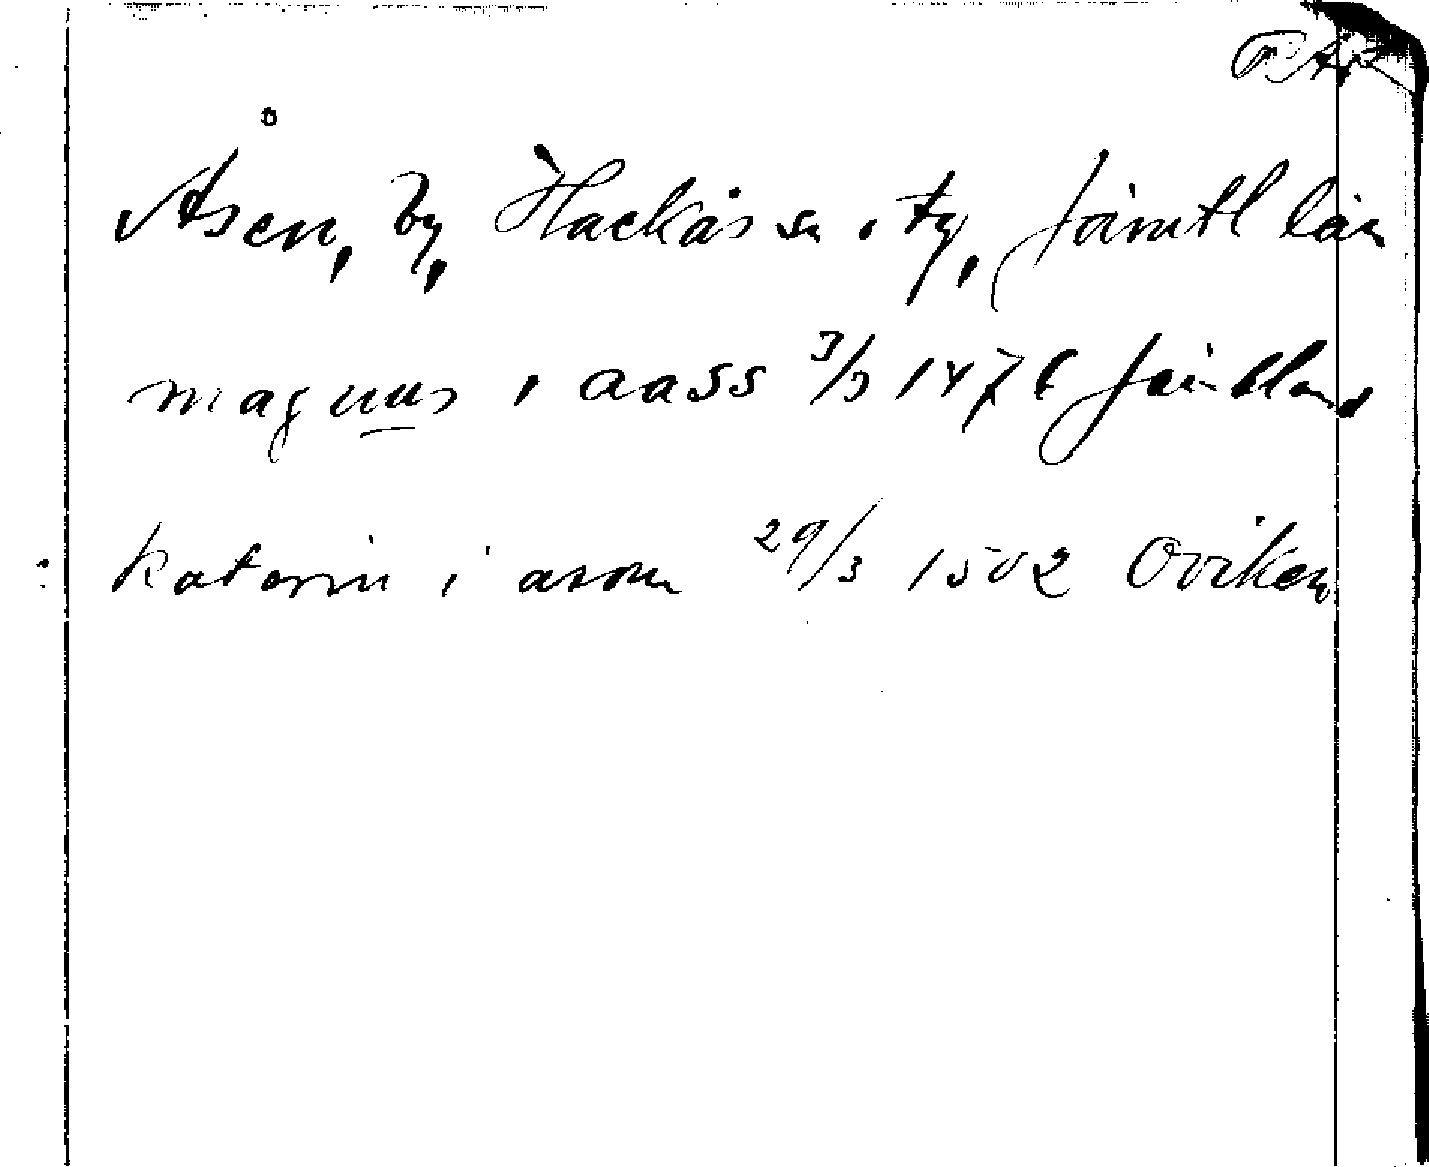 Åsen, by, Hackås sn o ty, Jämtl län
magnus i aass 3/3 1476 Jämtland
katerin i asom 29/3 1502 Oviken